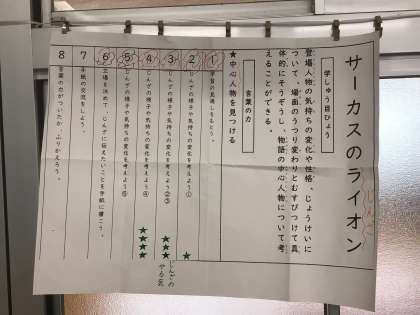 サーカスのライオン
じんざ
学しゅう目ひょう
登場人物の気持ちの変化や性格、じょうけいに
ついて、場面のうつり変わりとむすびつけて具
体的にそうぞうし、物語の中心人物について考
えることができる。
言葉の力
★中心人物を見つける
① 学習の見通しをもとう。
② じんざの様子や気持ちの変化を考えよう①
★
③ じんざの様子や気持ちの変化を考えよう②③
★★★
④ じんざの様子や気持ちの変化を考えよう④
★★★★
⑤ じんざの様子や気持ちの変化を考えよう⑤
⑥ 立場を決めて、じんざに伝えたいことを手紙に書こう。
7 手紙の交流をしよう。
8 言葉の力がついたか、ふりかえろう。
じんざの
やる気